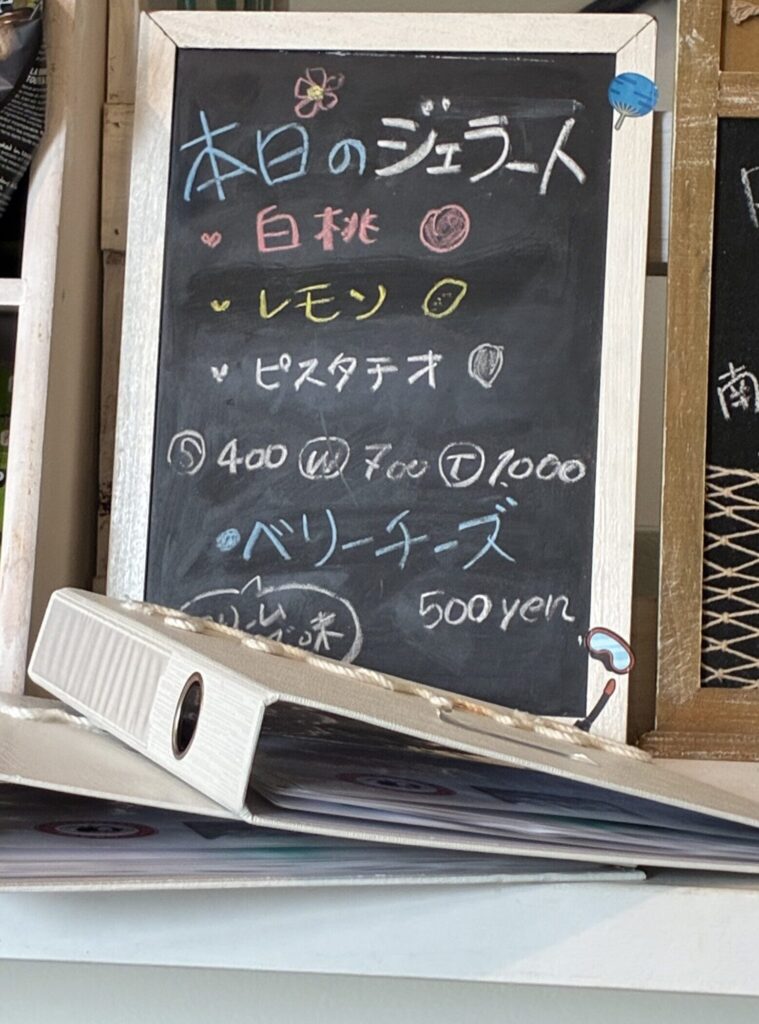 本日のジェラート
白桃
レモン
ピスタチオ
S 400 W 700 T 1,000
ベリーチーズ
500 yen
味
南